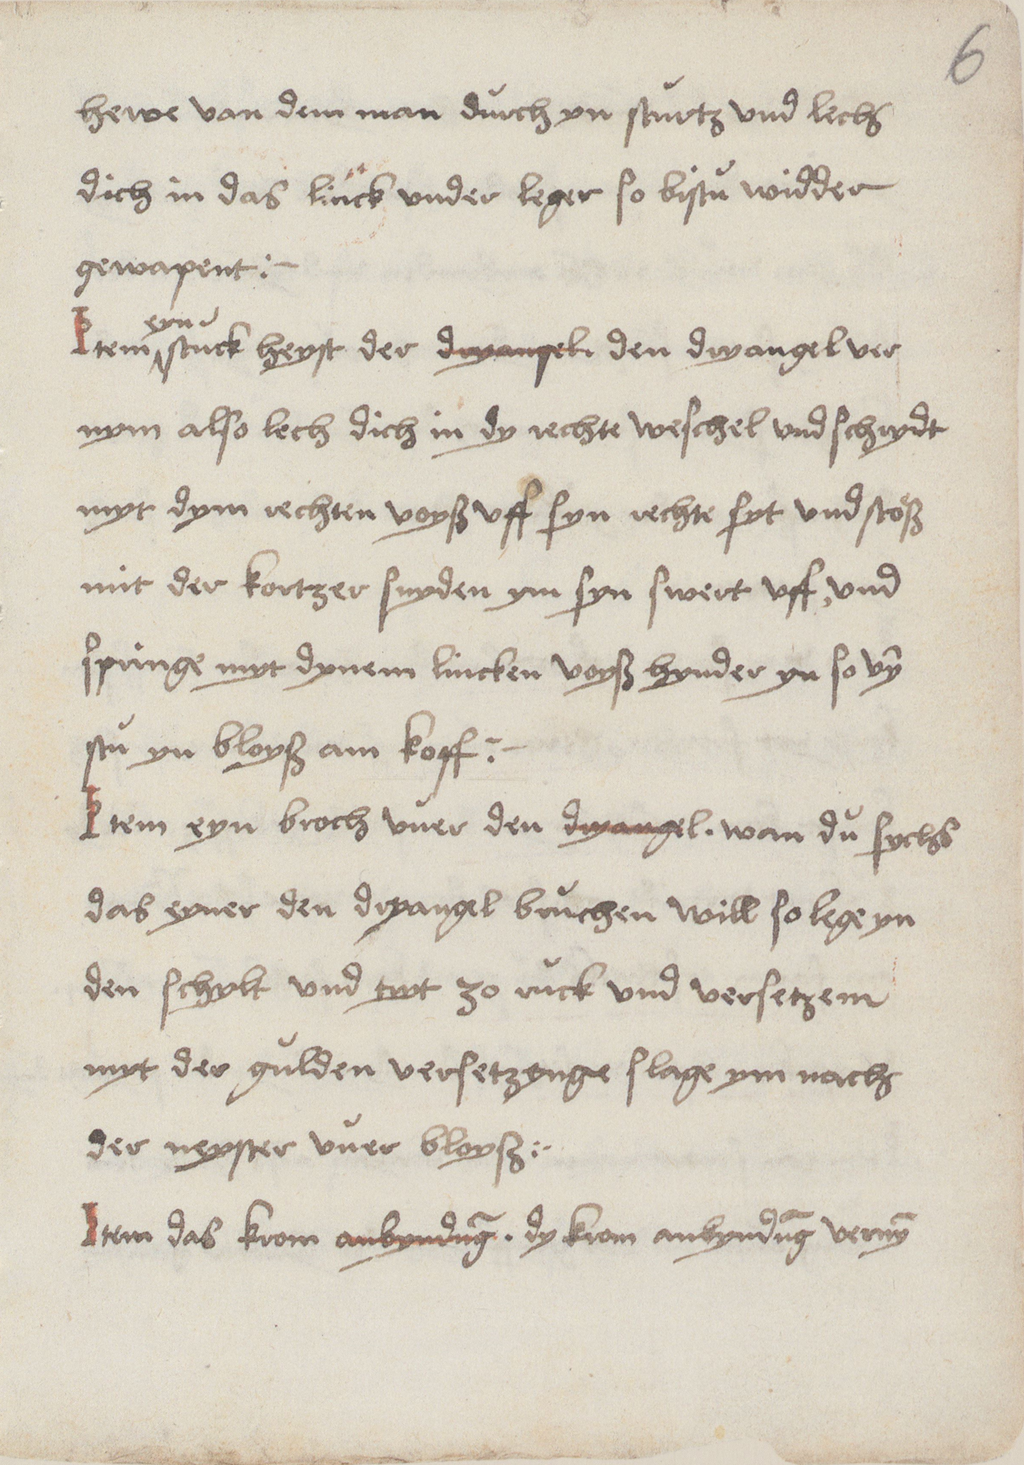 6
hewe van dem man durch yn sturtz vnd lech
dich in das linck vnder leger so bistu widder
gewapent :~
Item eyn stuck heyst der dryangel den dryangel ver
nym also lech dich in dy rechte weschel vnd schrydt
myt dym rechten voyß vff syn rechte syt vnd stöß
mit der kortzer snyden ym syn swert vff, vnd
springe myt dynem lincken voyß hynder yn so vȳ
stu yn bloyß am koff :~
Item eyn broch vuer den dryangel · wan du sychs
das eyner den dryangel bruchen will so lege yn
den schylt vnd tryt zo ruck vnd versetzem
myt der gulden versetzynge slage ym nach
der neyster vuer bloyß :~
Item das krom anbyndūg · dy krom anbyndūg vernȳ